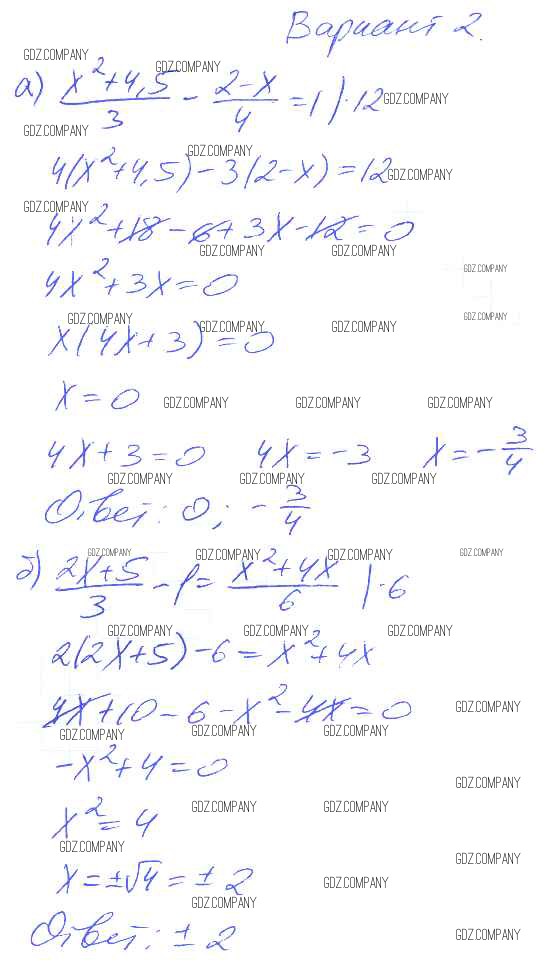 Вариант 2.
GDZ.COMPANY
GDZ.COMPANY
а) (x²+4,5)/3 - (2-x)/4 = 1 |·12 GDZ.COMPANY
GDZ.COMPANY
GDZ.COMPANY
4(x²+4,5) - 3(2-x) = 12 GDZ.COMPANY
GDZ.COMPANY
4x²+18-6+3x-12=0
GDZ.COMPANY GDZ.COMPANY
GDZ.COMPANY
4x²+3x=0
GDZ.COMPANY GDZ.COMPANY GDZ.COMPANY GDZ.COMPANY
x(4x+3)=0
x=0 GDZ.COMPANY GDZ.COMPANY GDZ.COMPANY
4x+3=0 4x=-3 x=-3/4
GDZ.COMPANY GDZ.COMPANY GDZ.COMPANY
Ответ: 0; -3/4
GDZ.COMPANY GDZ.COMPANY GDZ.COMPANY GDZ.COMPANY
б) (2x+5)/3 - 1 = (x²+4x)/6 |·6
GDZ.COMPANY GDZ.COMPANY GDZ.COMPANY
2(2x+5)-6=x²+4x
4x+10-6-x²-4x=0 GDZ.COMPANY
GDZ.COMPANY GDZ.COMPANY GDZ.COMPANY
-x²+4=0
GDZ.COMPANY
x²=4 GDZ.COMPANY GDZ.COMPANY
GDZ.COMPANY
GDZ.COMPANY
x=±√4=±2 GDZ.COMPANY
GDZ.COMPANY
Ответ: ±2 GDZ.COMPANY